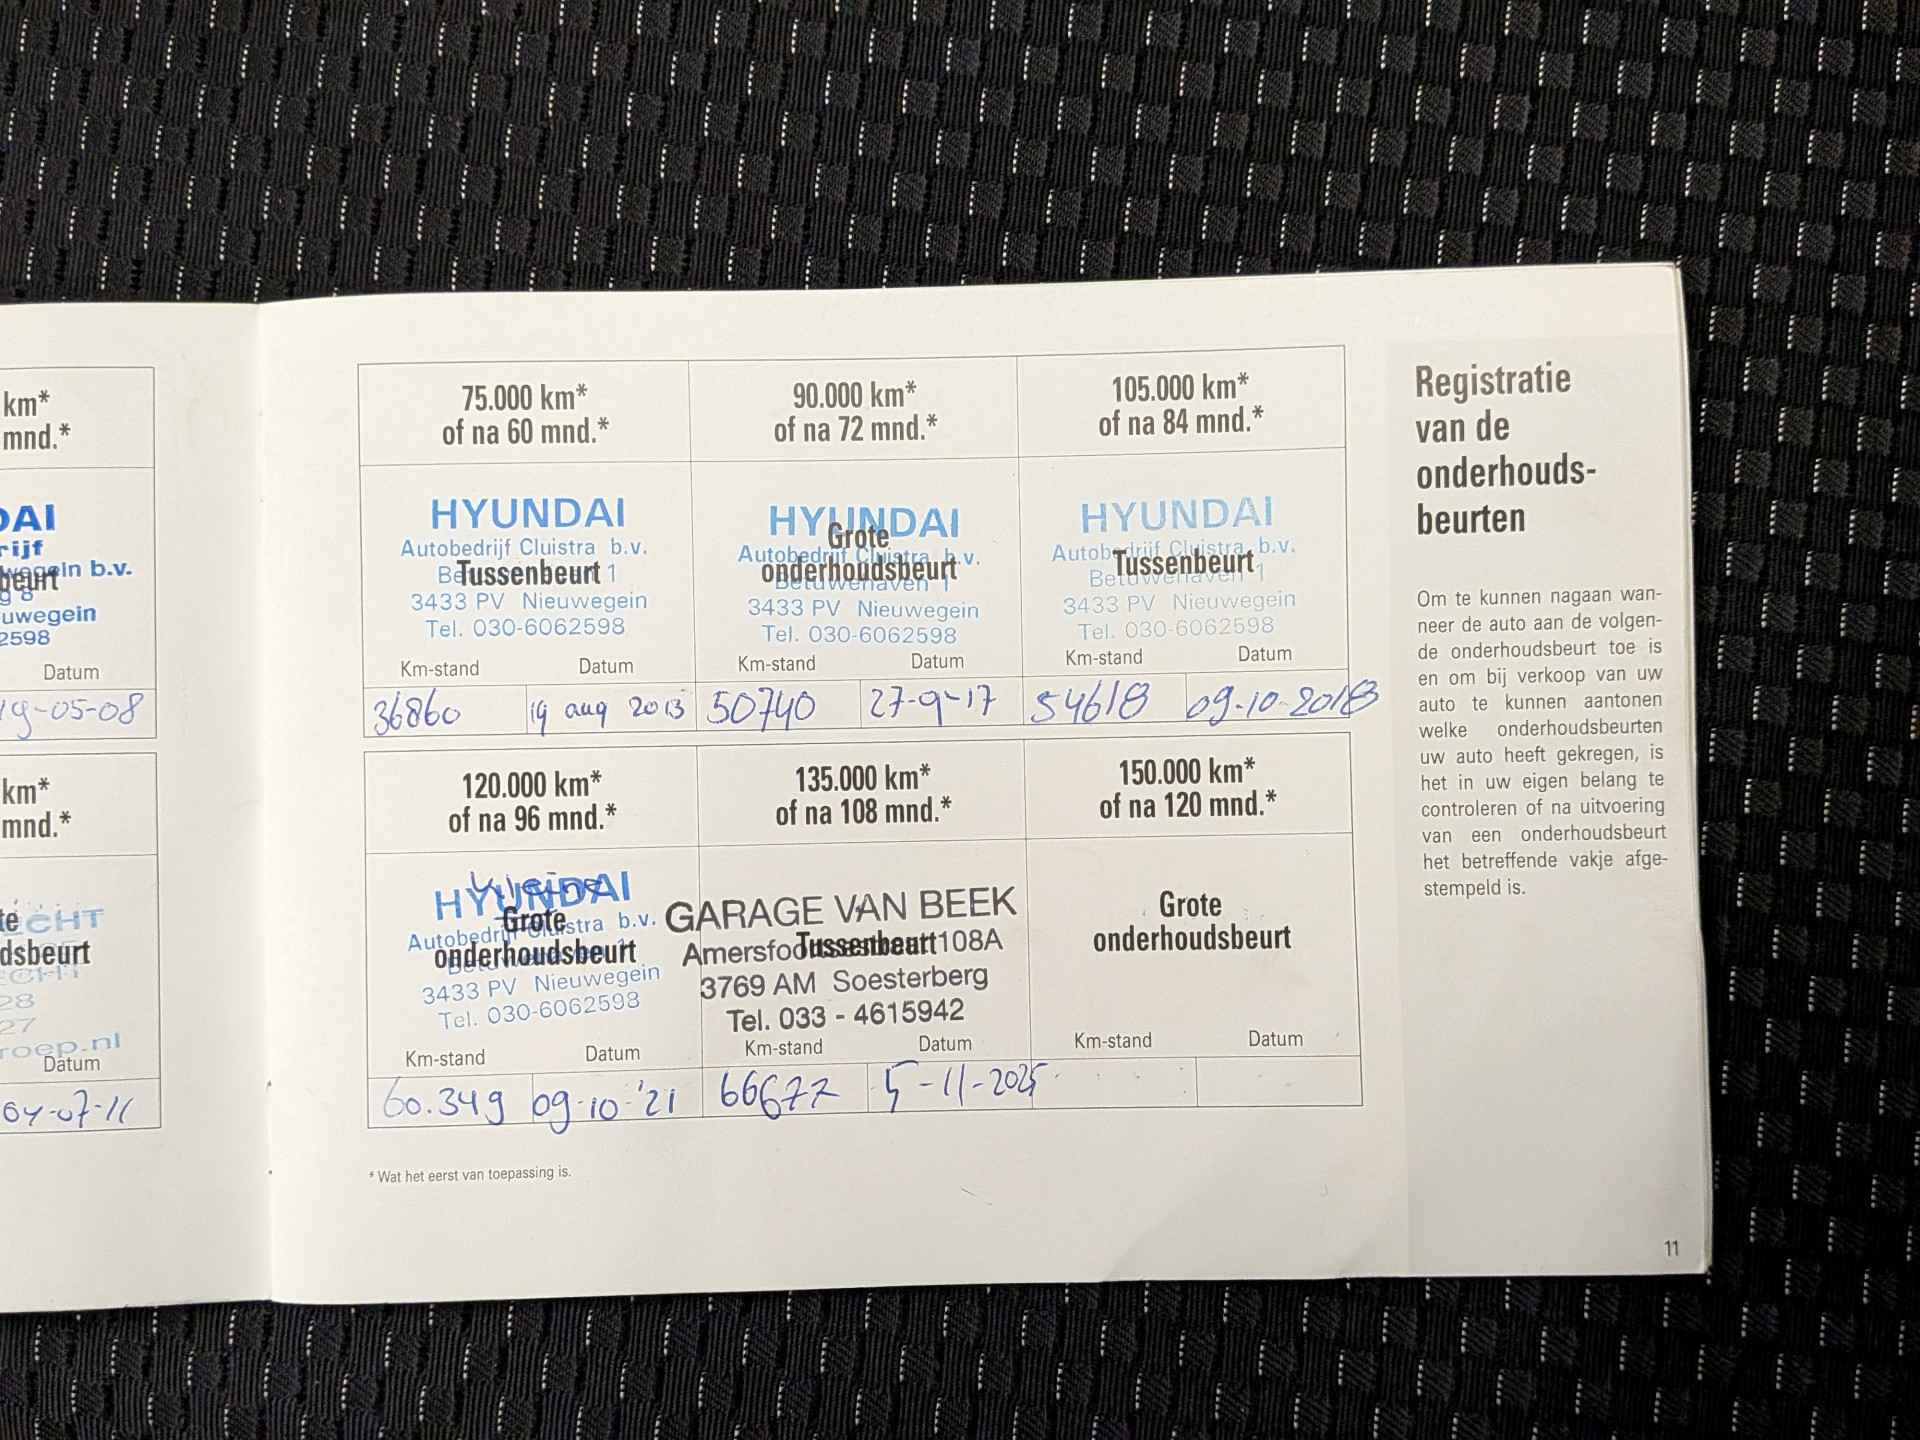 km*
mnd.*
DAI
rijf
wegein b.v.
beurt
g 8
uwegein
2598
Datum
19-05-08
km*
mnd.*
te
ECHT
dsbeurt
ECHT
28
27
roep.nl
Datum
04-07-11
75.000 km*
of na 60 mnd.*
HYUNDAI
Autobedrijf Cluistra b.v.
Tussenbeurt 1
3433 PV Nieuwegein
Tel. 030-6062598
Km-stand Datum
36860 19 aug 2013
90.000 km*
of na 72 mnd.*
HYUNDAI
Grote
Autobedrijf Cluistra b.v.
onderhoudsbeurt
Betuwehaven 1
3433 PV Nieuwegein
Tel. 030-6062598
Km-stand Datum
50740 27-9-17
105.000 km*
of na 84 mnd.*
HYUNDAI
Autobedrijf Cluistra b.v.
Tussenbeurt
Betuwehaven 1
3433 PV Nieuwegein
Tel. 030-6062598
Km-stand Datum
54618 09-10-2018
120.000 km*
of na 96 mnd.*
Kleine
HYUNDAI
Grote
Autobedrijf Cluistra b.v.
onderhoudsbeurt
3433 PV Nieuwegein
Tel. 030-6062598
Km-stand Datum
60.349 09-10-'21
135.000 km*
of na 108 mnd.*
GARAGE VAN BEEK
Tussenbeurt 108A
3769 AM Soesterberg
Tel. 033 - 4615942
Km-stand Datum
66677 5-11-2025
150.000 km*
of na 120 mnd.*
Grote
onderhoudsbeurt
Km-stand Datum
* Wat het eerst van toepassing is.
Registratie
van de
onderhouds-
beurten
Om te kunnen nagaan wan-
neer de auto aan de volgen-
de onderhoudsbeurt toe is
en om bij verkoop van uw
auto te kunnen aantonen
welke onderhoudsbeurten
uw auto heeft gekregen, is
het in uw eigen belang te
controleren of na uitvoering
van een onderhoudsbeurt
het betreffende vakje afge-
stempeld is.
11